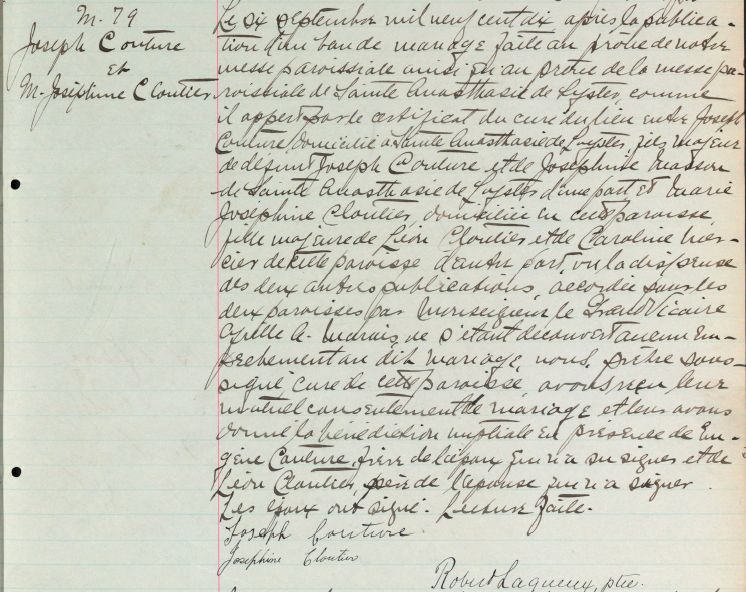 M. 79
Joseph Couture
et
M. Joséphine Cloutier
Le six septembre mil neuf cent dix après la publica-
tion d'un ban de mariage faite au prône de notre
messe paroissiale ainsi qu'au prône de la messe pa-
roissiale de Sainte Anasthasie de Lyster comme
il appert par le certificat du curé du lieu entre Joseph
Couture, domicilié à Sainte Anasthasie de Lyster, fils majeur
de défunt Joseph Couture et de Joséphine Masson
de Sainte Anasthasie de Lyster d'une part et Marie
Joséphine Cloutier, domiciliée en cette paroisse,
fille majeure de Léon Cloutier et de Caroline Mer-
cier de cette paroisse d'autre part, vu la dispense
des deux autres publications, accordée dans les
deux paroisses par Monseigneur le Grand Vicaire
Cyrille A. Marois, ne s'étant découvert aucun em-
pêchement au dit mariage, nous, prêtre sous-
signé curé de cette paroisse, avons reçu leur
mutuel consentement de mariage et leur avons
donné la bénédiction nuptiale en présence de Eu-
gène Couture, frère de l'époux qui n'a su signer et de
Léon Cloutier, père de l'épouse qui n'a su signer.
Les époux ont signé. Lecture faite.
Joseph Couture
Josephine Cloutier
Robert Lagueux, ptre.